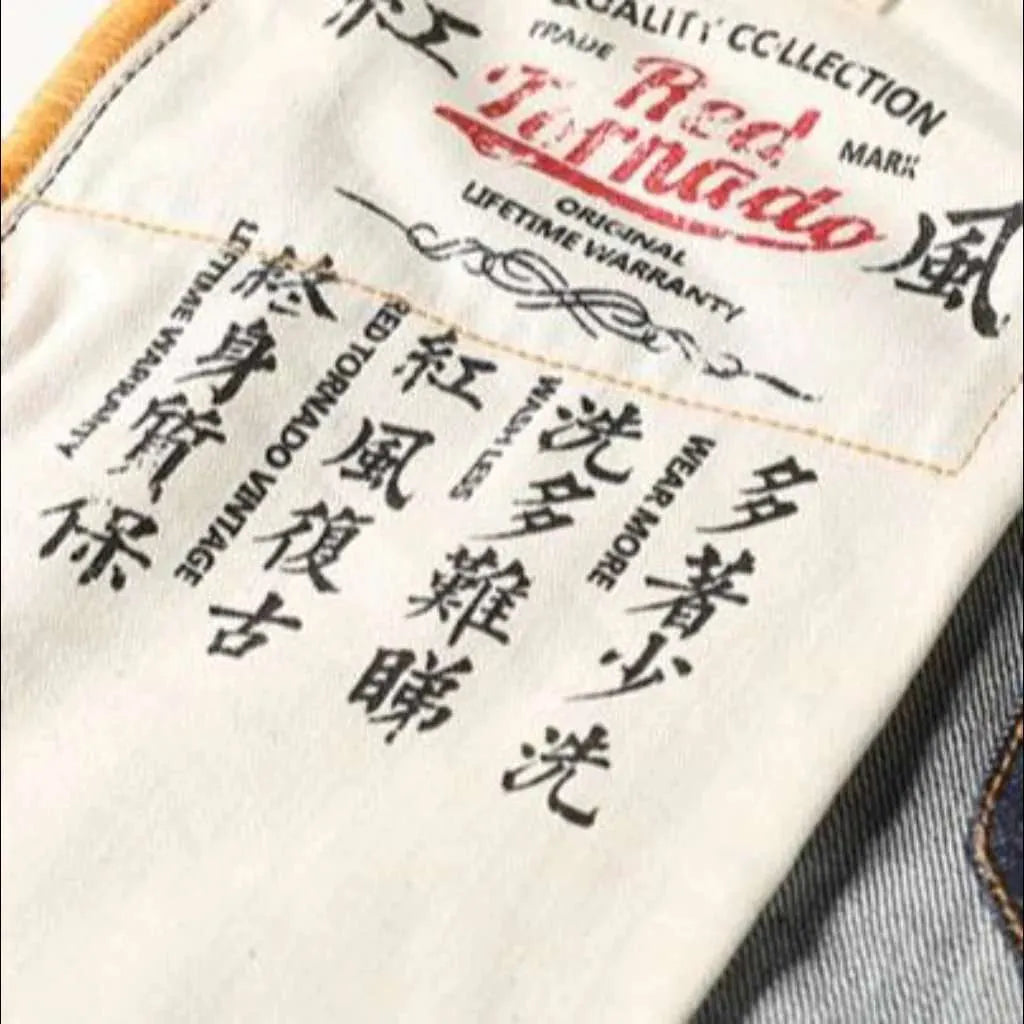 QUALITY COLLECTION
紅 風
TRADE MARK
Red
Tornado
ORIGINAL
LIFETIME WARRANTY
多著少洗
WEAR MORE
洗多難睇
WASH LESS
紅風復古
RED TORNADO VINTAGE
終身質保
LIFETIME WARRANTY